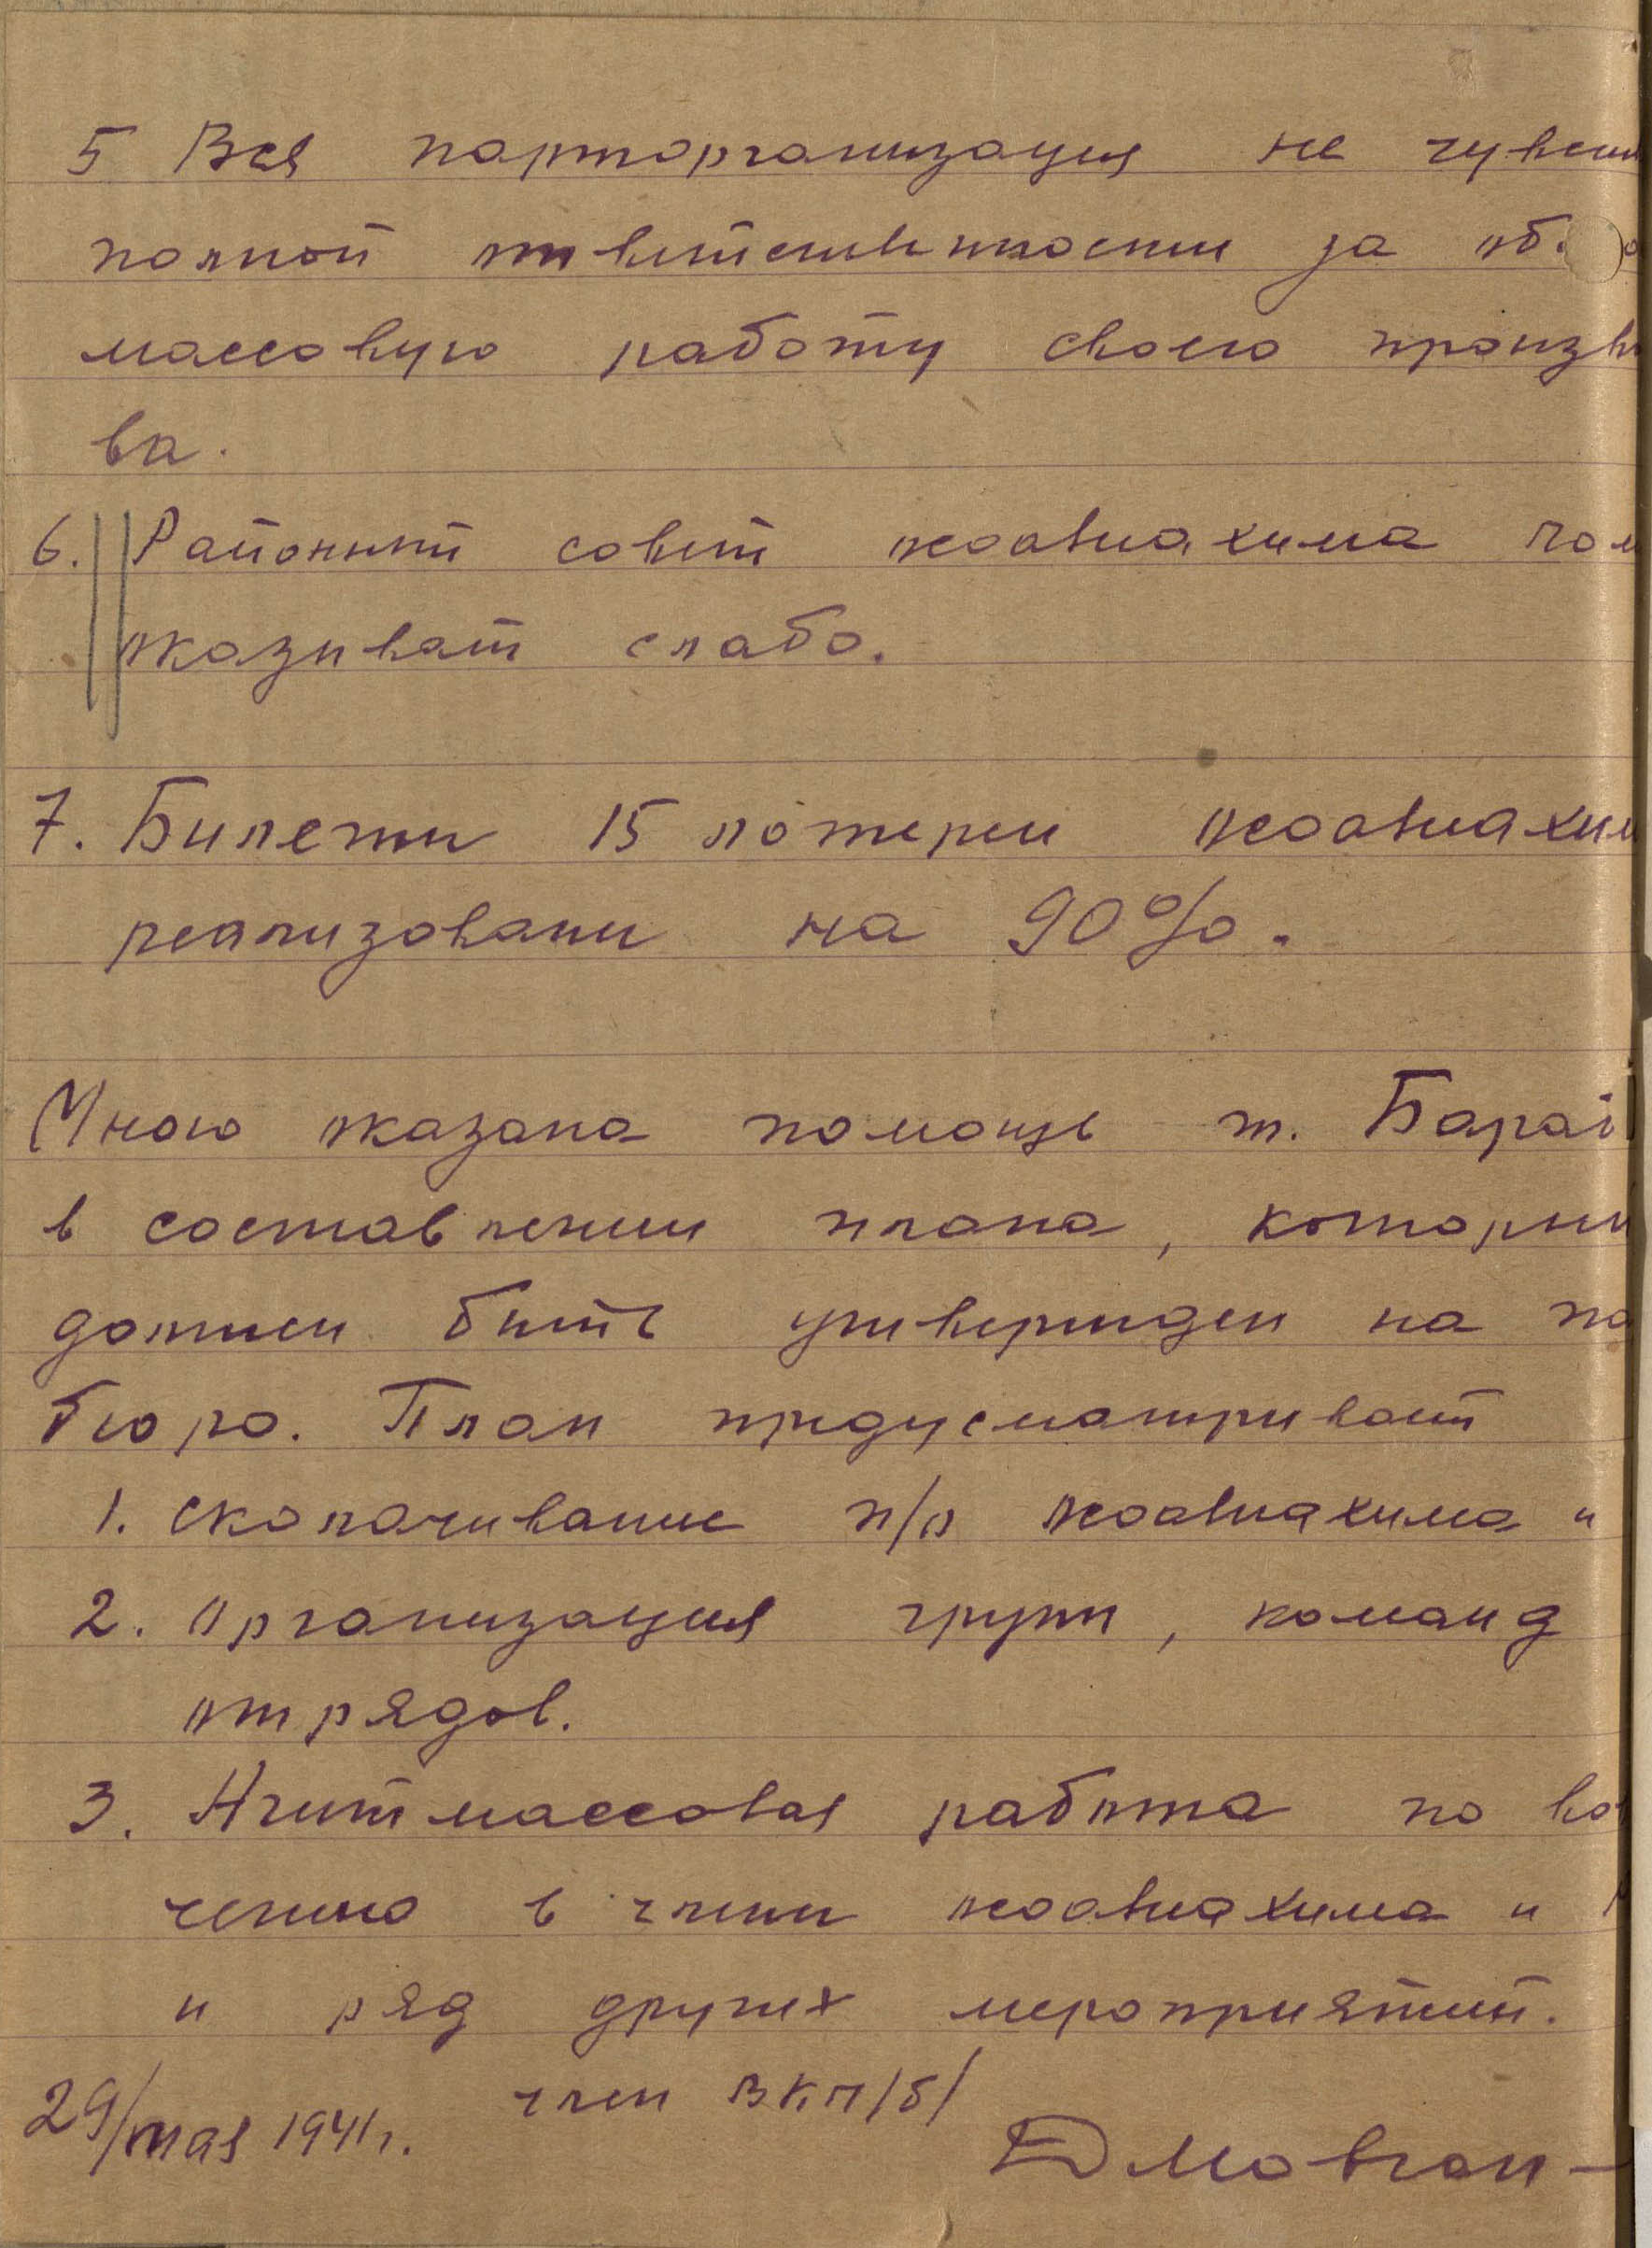 5 Вся парторганизация не чувст
полной ответственности за об.
массовую работу своего произв
ва.
6. Районный совет осоавиахима пом
оказывает слабо.
7. Билеты 15 лотереи осоавиахим
реализованы на 90%.
Мною оказана помощь т.
в составлении плана, который
должен быть утвержден на па
бюро. План предусматривает
1. сколачивание п/о осоавиахима и
2. Организация групп, команд
отрядов.
3. Агитмассовая работа по во
чению в члены осоавиахима и
и ряд других мероприятий.
29/мая 1941г. член ВКП/б/